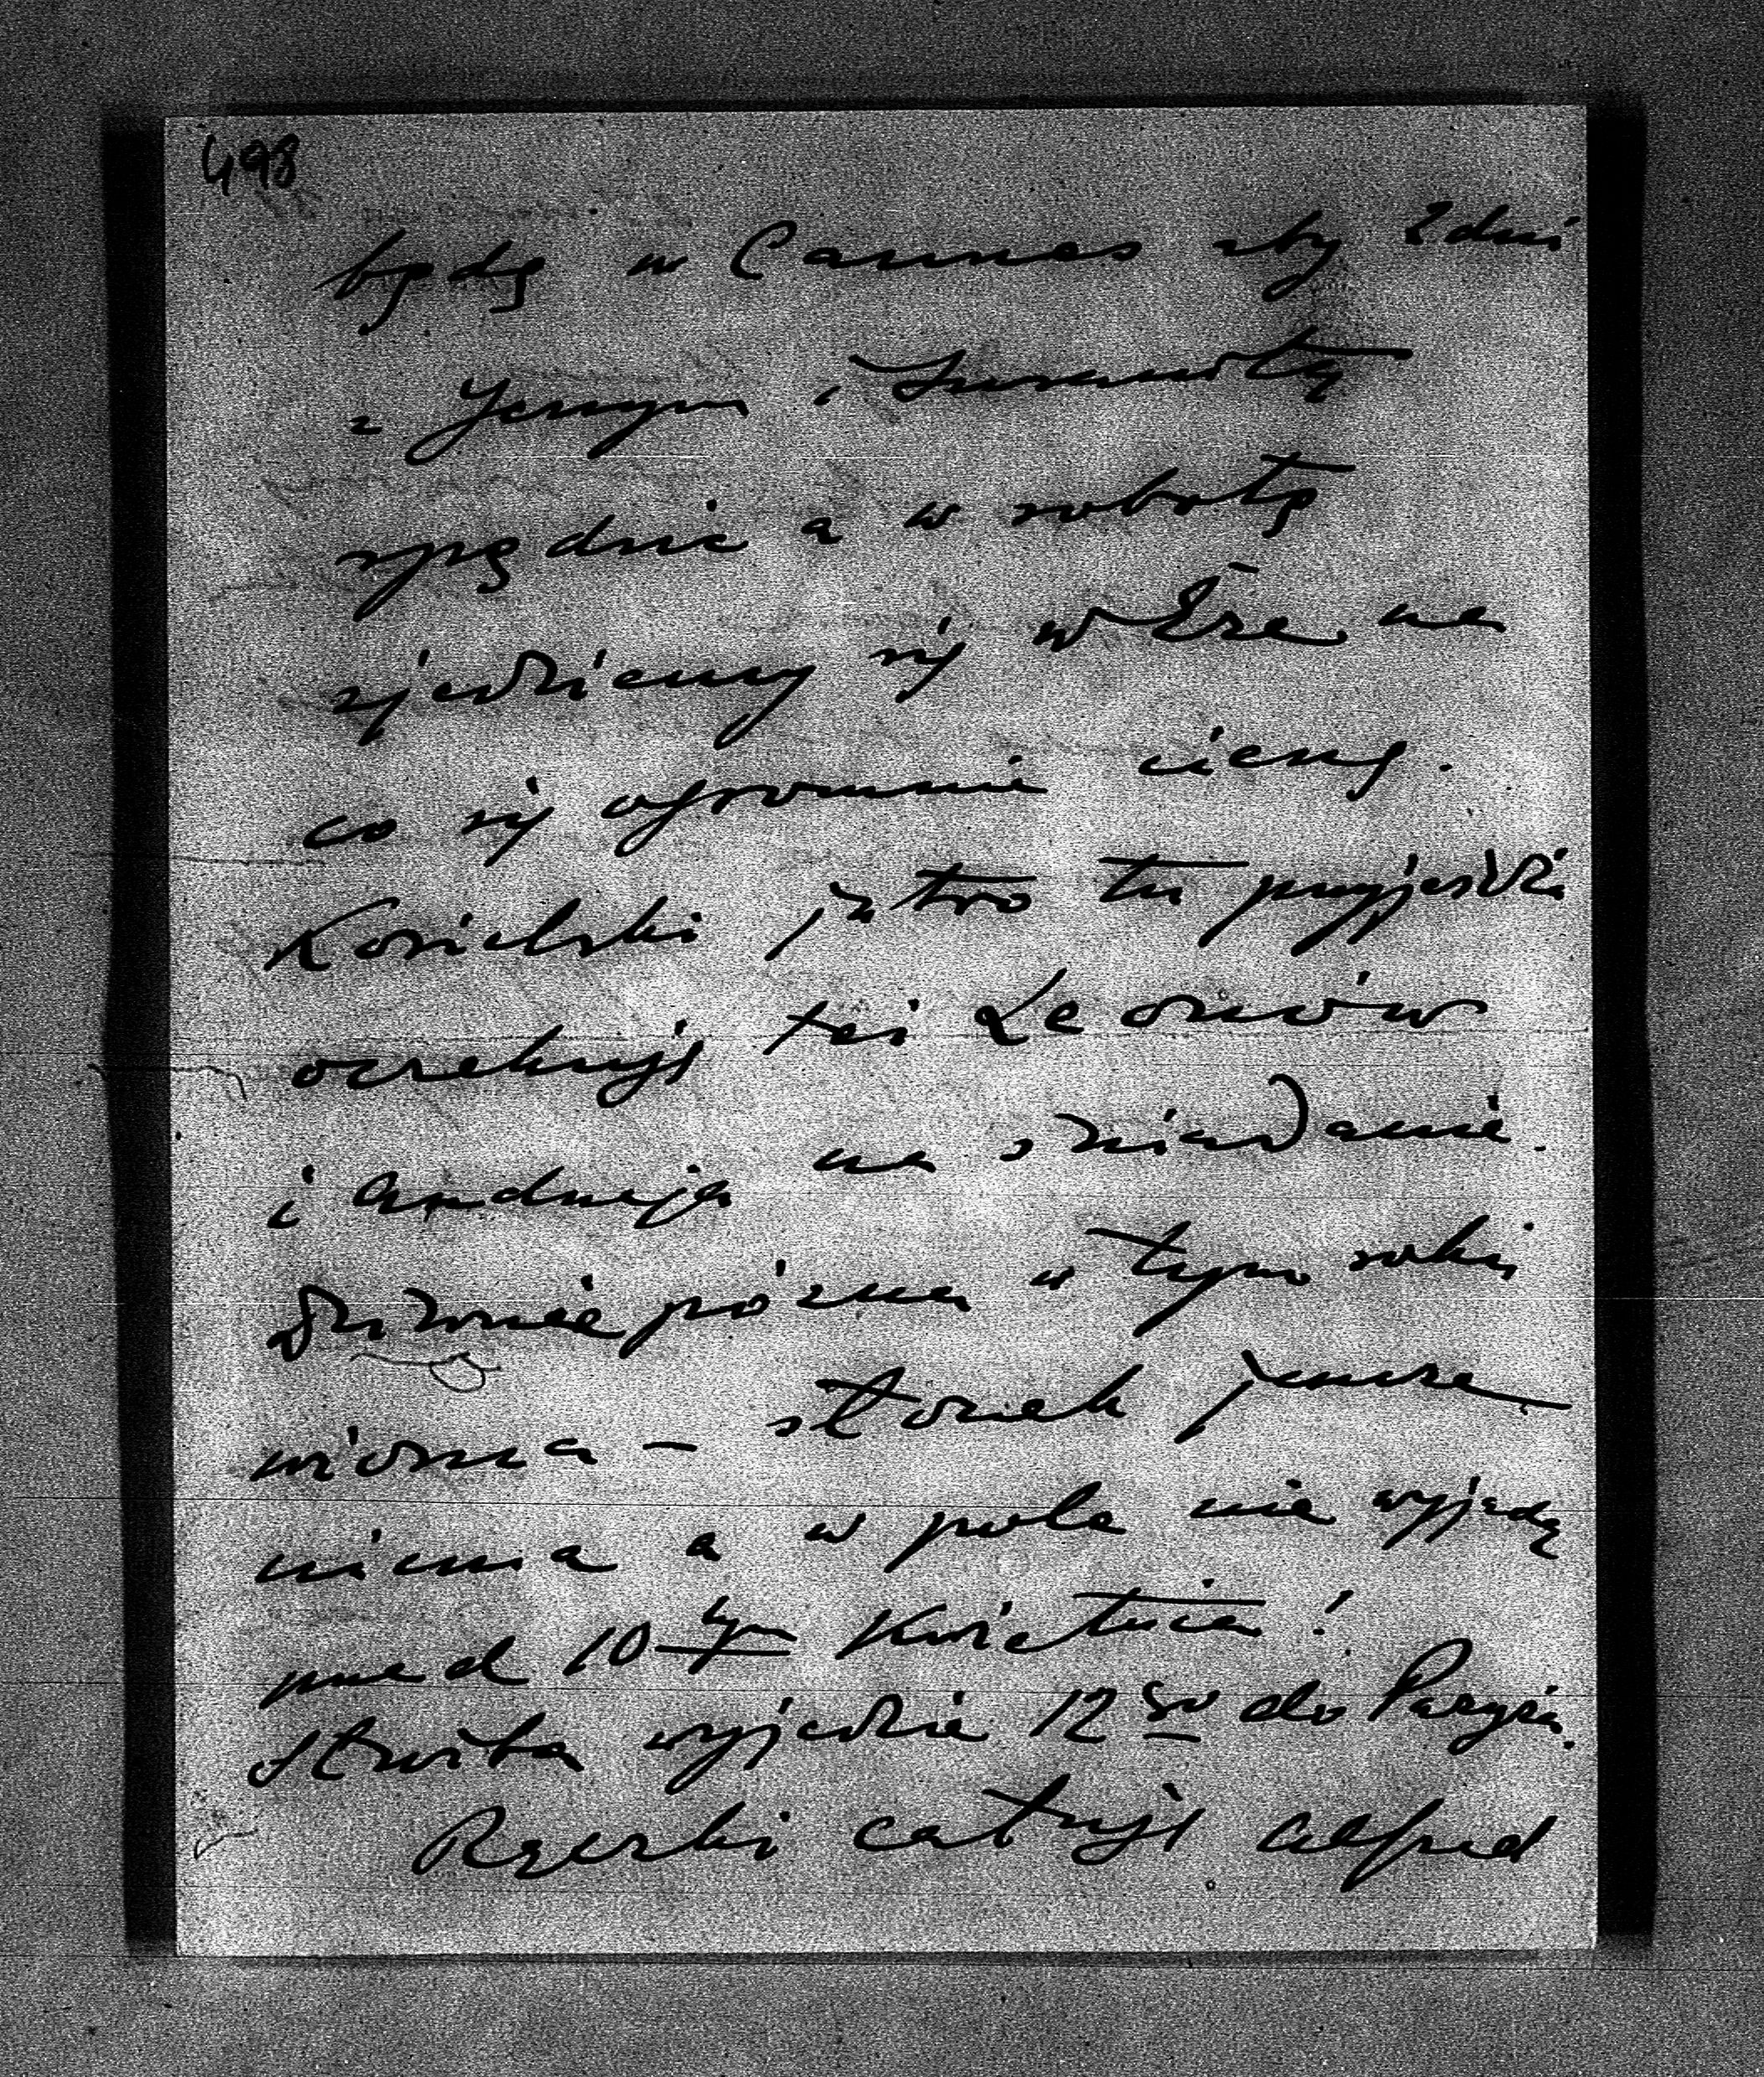 498
będę w Cannes aby 2 dni
z Jerzym i
spędzić a w sobotę
zjedziemy się w Èze na
co się ogromnie cieszę.
Kosielski jutro tu przyjeżdża
oczekuję też Leonów
i Andrzeja na śniadanie.
Dziwnie późna w tym roku
wiosna – stoniek jeszcze
niema a w pole nie wyjadą
przed 10tym Kwietnia!
wyjedzie 12go do Paryża.
Rączki całuję Alfred